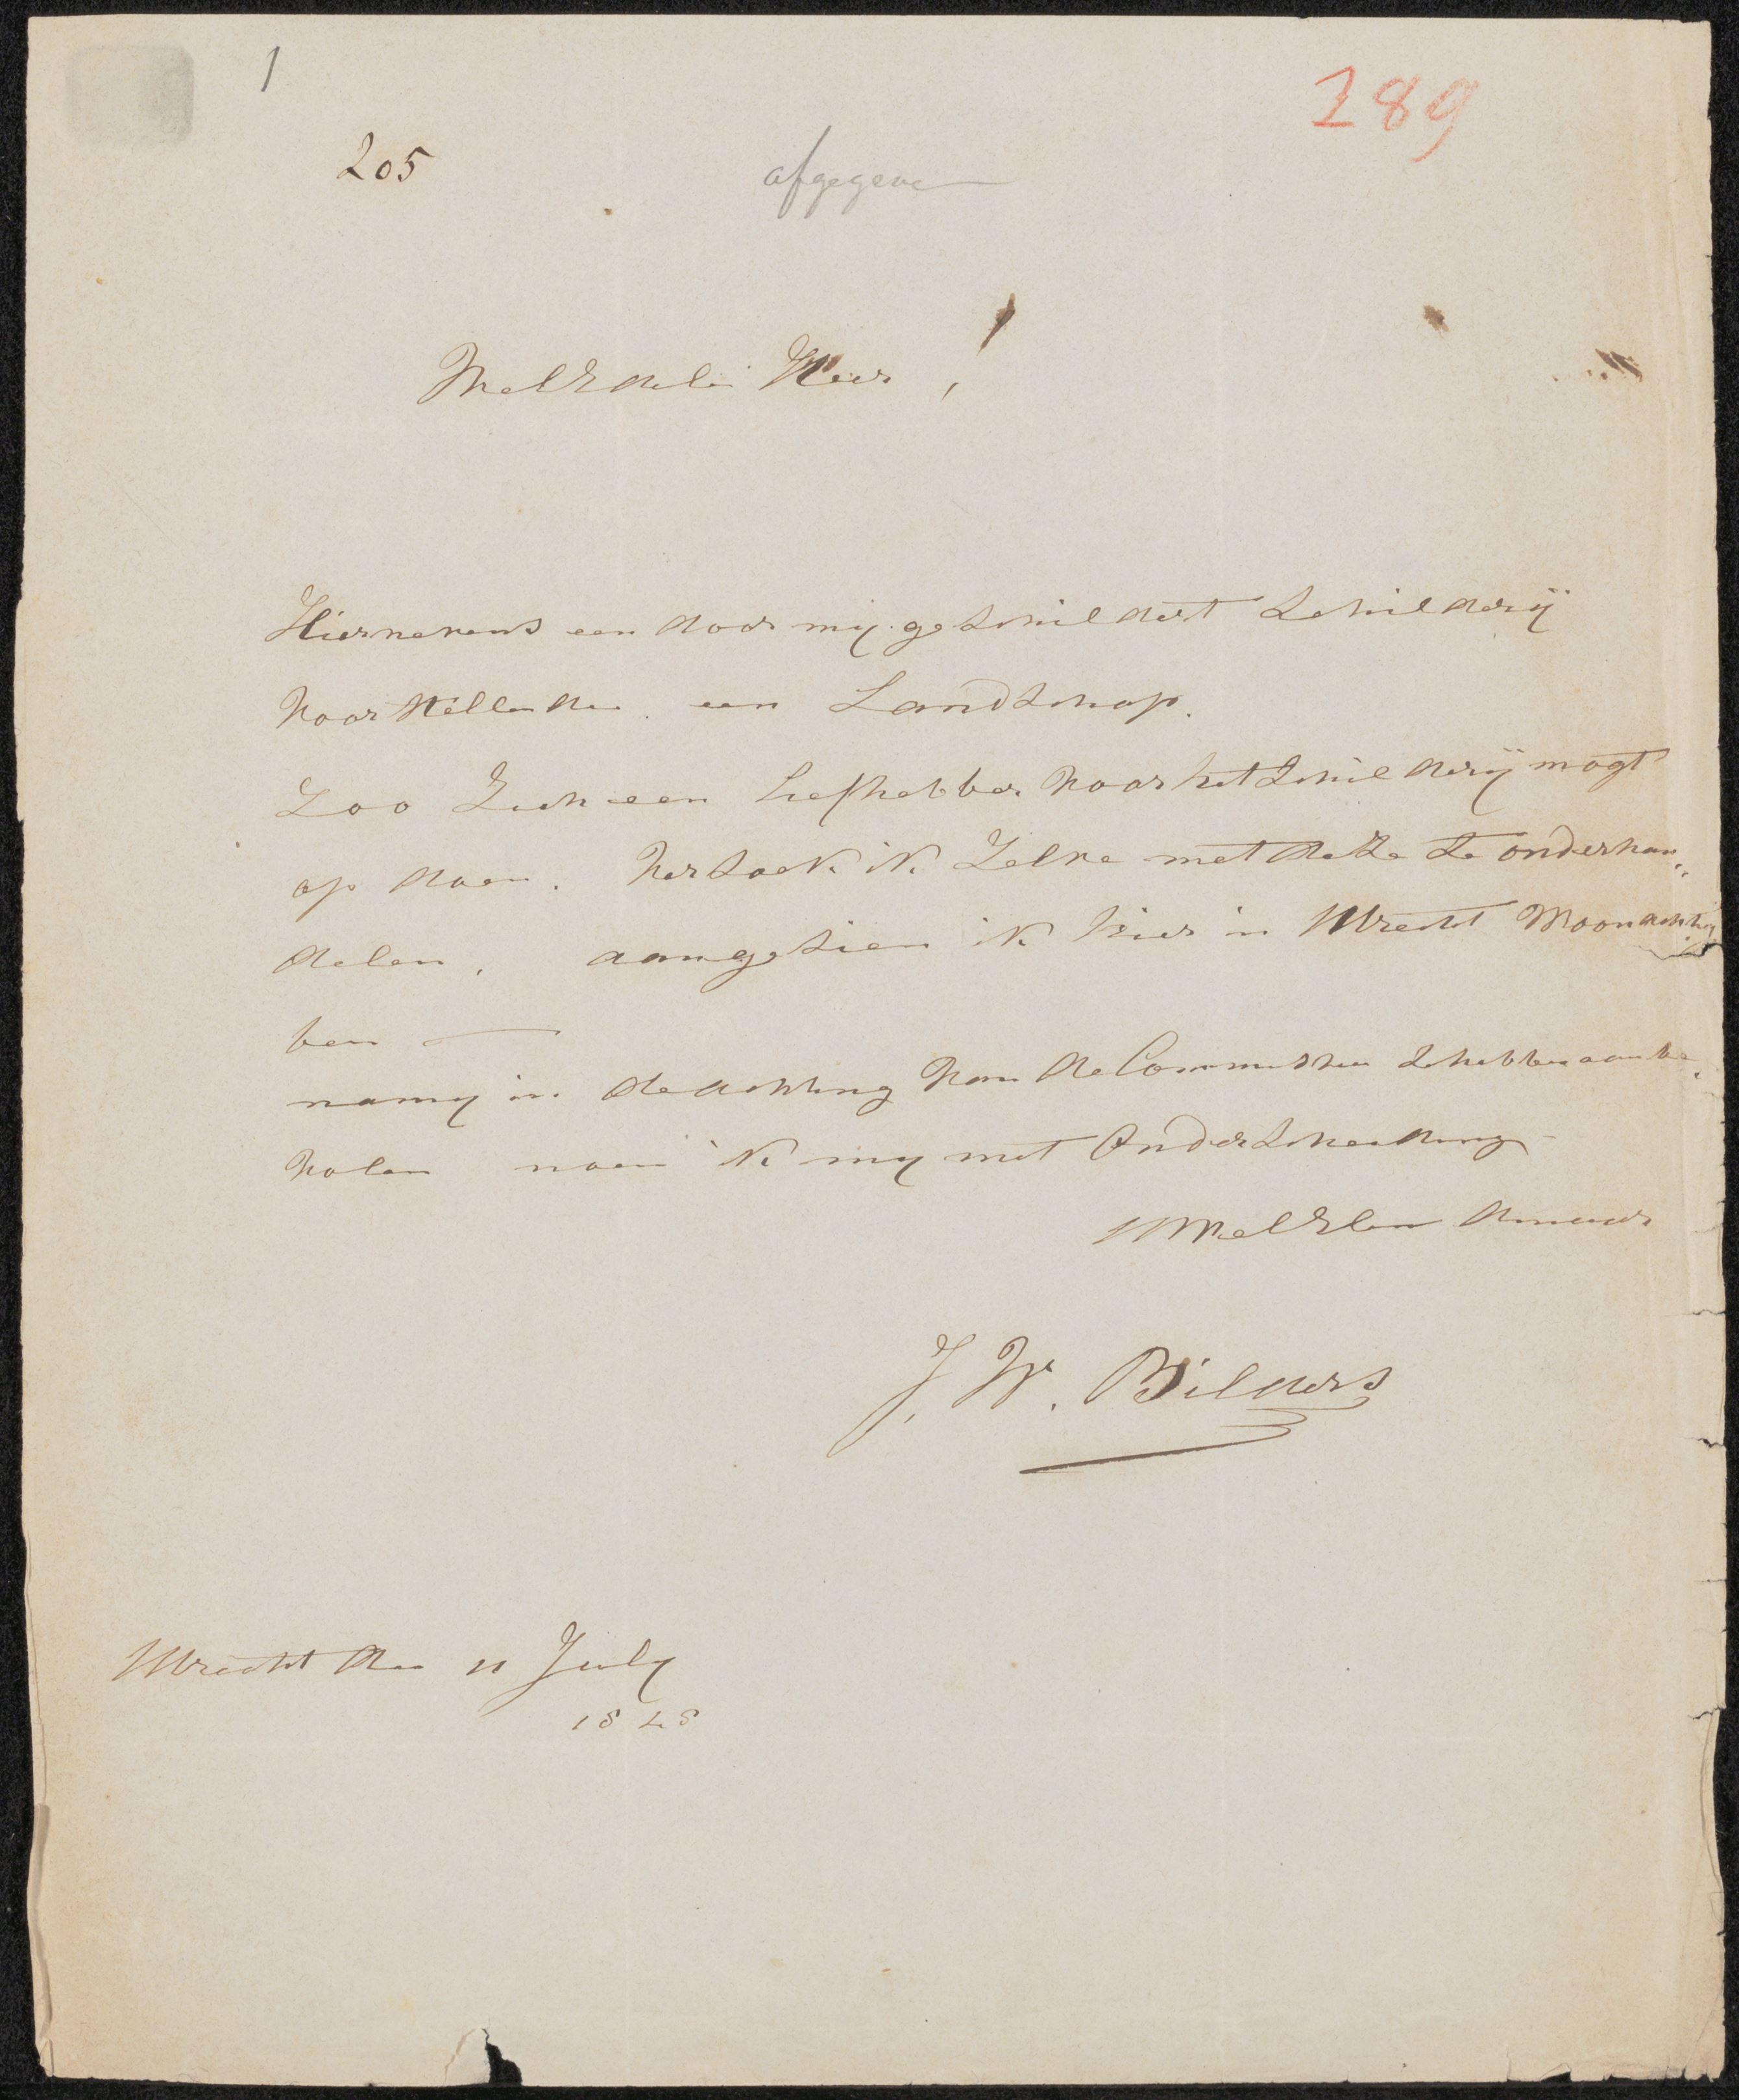 1
289
205
afgegeven
WelEdele Heer,
Hiernevens een door mij geschildert schilderij
voorstellende een Landschap.
Zoo Zich een liefhebber voor het schilderij mogt
op doen. verzoek ik Zelve met deze te onderhan„
delen, aangezien ik hier in Utrecht Woonachtig
ben —
na mij in de achting van de Commissie te hebben aanbe„
volen noem ik mij met Onderscheiding
UWelEden Dienaar
J. W. Bilders
Utrecht den 11 July
1848